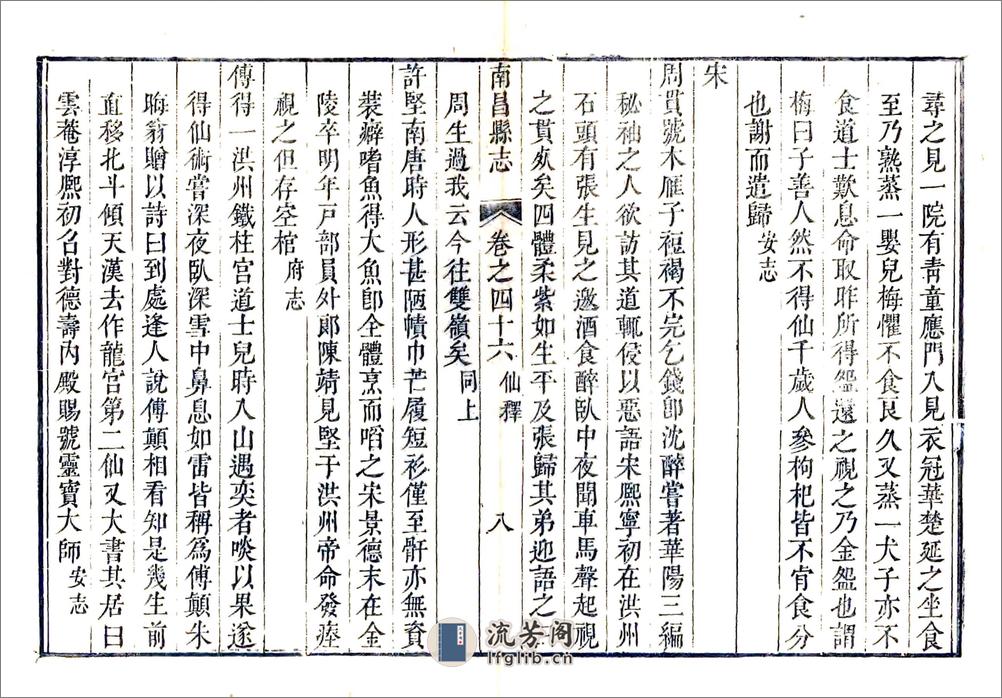 尋之見一院有青童應門入見衣冠華楚延之坐食
至乃熟蒸一嬰兒梅懼不食良久又蒸一犬子亦不
食道士歎息命取昨所得盌還之視之乃金盌也謂
梅曰子善人然不得仙千歲人參枸杞皆不肯食分
也謝而遣歸安志
宋
周貫號木雁子裋褐不完乞錢卽沈醉嘗著華陽三編
秘袖之人欲訪其道輒侵以惡語宋熙寧初在洪州
石頭有張生見之邀酒食醉臥中夜聞車馬聲起視
之貫死矣四體柔紫如生平及張歸其弟迎語之曰
周生過我云今往雙嶺矣同上
南昌縣志 卷之四十六 仙釋 八
許堅南唐時人形甚陋幘巾芒履短衫僅至骭亦無資
裝癖嗜魚得大魚卽全體烹而啗之宋景德末在金
陵卒明年戶部員外郎陳靖見堅于洪州帝命發瘞
視之但存空棺府志
傅得一洪州鐵柱宮道士兒時入山遇奕者啖以果遂
得仙術嘗深夜臥深雪中鼻息如雷皆稱爲傅顛朱
晦翁贈以詩曰到處逢人說傅顛相看知是幾生前
直移北斗傾天漢去作龍宮第二仙又大書其居曰
雲菴淳熙初名對德壽內殿賜號靈寶大師安志
流芳阁
lfglib.cn